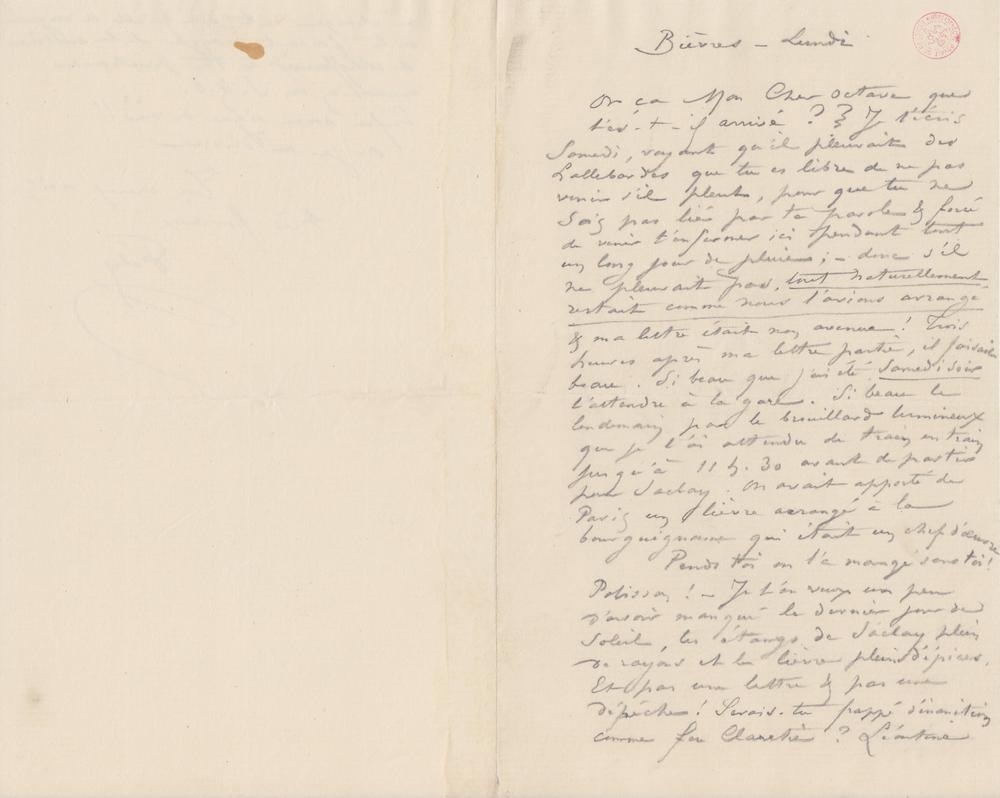 Bièvres – Lundi
Or ça Mon Cher Octave que
t'es-t-il arrivé ?? Je t'écris
Samedi, voyant qu'il pleuvait des
hallebardes que tu es libre de ne pas
venir s'il pleut, pour que tu ne
sois pas lié par ta parole & forcé
de venir t'enfermer ici pendant tout
un long jour de pluie ; – donc s'il
ne pleuvait pas, tout naturellement
restait comme nous l'avions arrangé
& ma lettre était non avenue ! Trois
heures après ma lettre partie, il faisait
beau. Si beau que j'ai été Samedi soir
t'attendre à la gare. Si beau le
lendemain par le brouillard lumineux
que je t'ai attendu de train en train
jusqu'à 11 h. 30 avant de partir
pour Saclay. On avait apporté de
Paris un lièvre arrangé à la
bourguignonne qui était un chef d'œuvre
Pends toi on l'a mangé sans toi !
Polisson ! – Je t'en veux un peu
d'avoir manqué le dernier jour de
Soleil, les étangs de Saclay plein
de rayons et le lièvre plein d'épices.
Et pas une lettre & pas une
dépêche ! Serais-tu frappé d'inanition
comme feu Claretie ? Léontine